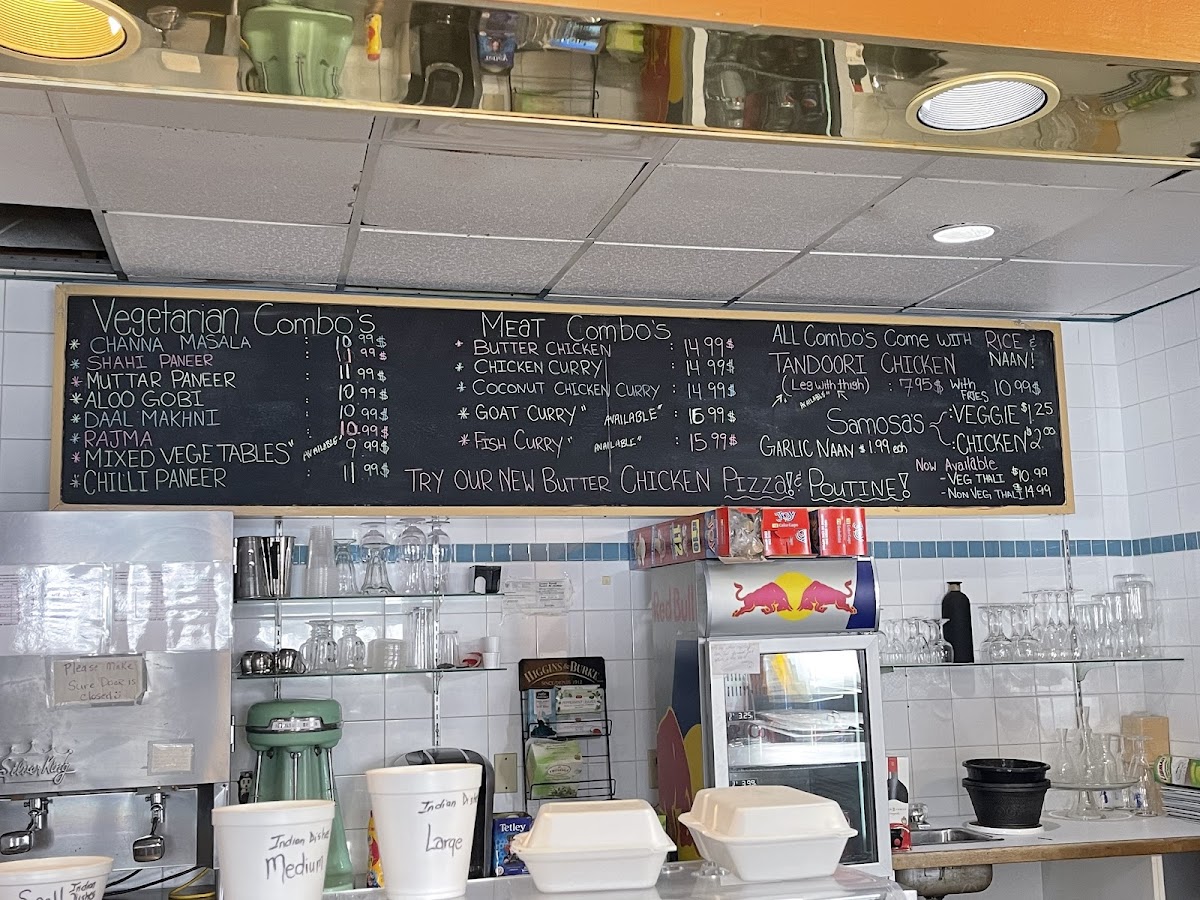 Vegetarian Combo's
* CHANNA MASALA : 10.99$
* SHAHI PANEER : 11.99$
* MUTTAR PANEER : 11.99$
* ALOO GOBI : 10.99$
* DAAL MAKHNI : 10.99$
* RAJMA : 10.99$
* MIXED VEGETABLES" AVAILABLE" 9.99$
* CHILLI PANEER : 11.99$
MEAT Combo's
* BUTTER CHICKEN : 14.99$
* CHICKEN CURRY : 14.99$
* COCONUT CHICKEN CURRY : 14.99$
* GOAT CURRY" AVAILABLE" : 16.99$
* FISH CURRY" AVAILABLE" : 15.99$
ALL COMBO'S COME WITH RICE &
NAAN!
TANDOORI CHICKEN
(Leg with thigh) : 7.95$ WITH FRIES 10.99$
AVAILABLE"
SAMOSA'S :VEGGIE $1.25
:CHICKEN $2.00
GARLIC NAAN $1.99 each
Now Available
- VEG THALI $10.99
- NON VEG THALI $14.99
TRY OUR NEW BUTTER CHICKEN PIZZA!& POUTINE!
Please Make
Sure Door is
closed
SilverKing
HIGGINS & BURKE
Red Bull
JOY
3.25
3.99
Tetley
Indian Dishes
Medium
Indian Dishes
Large
Small Indian Dishes